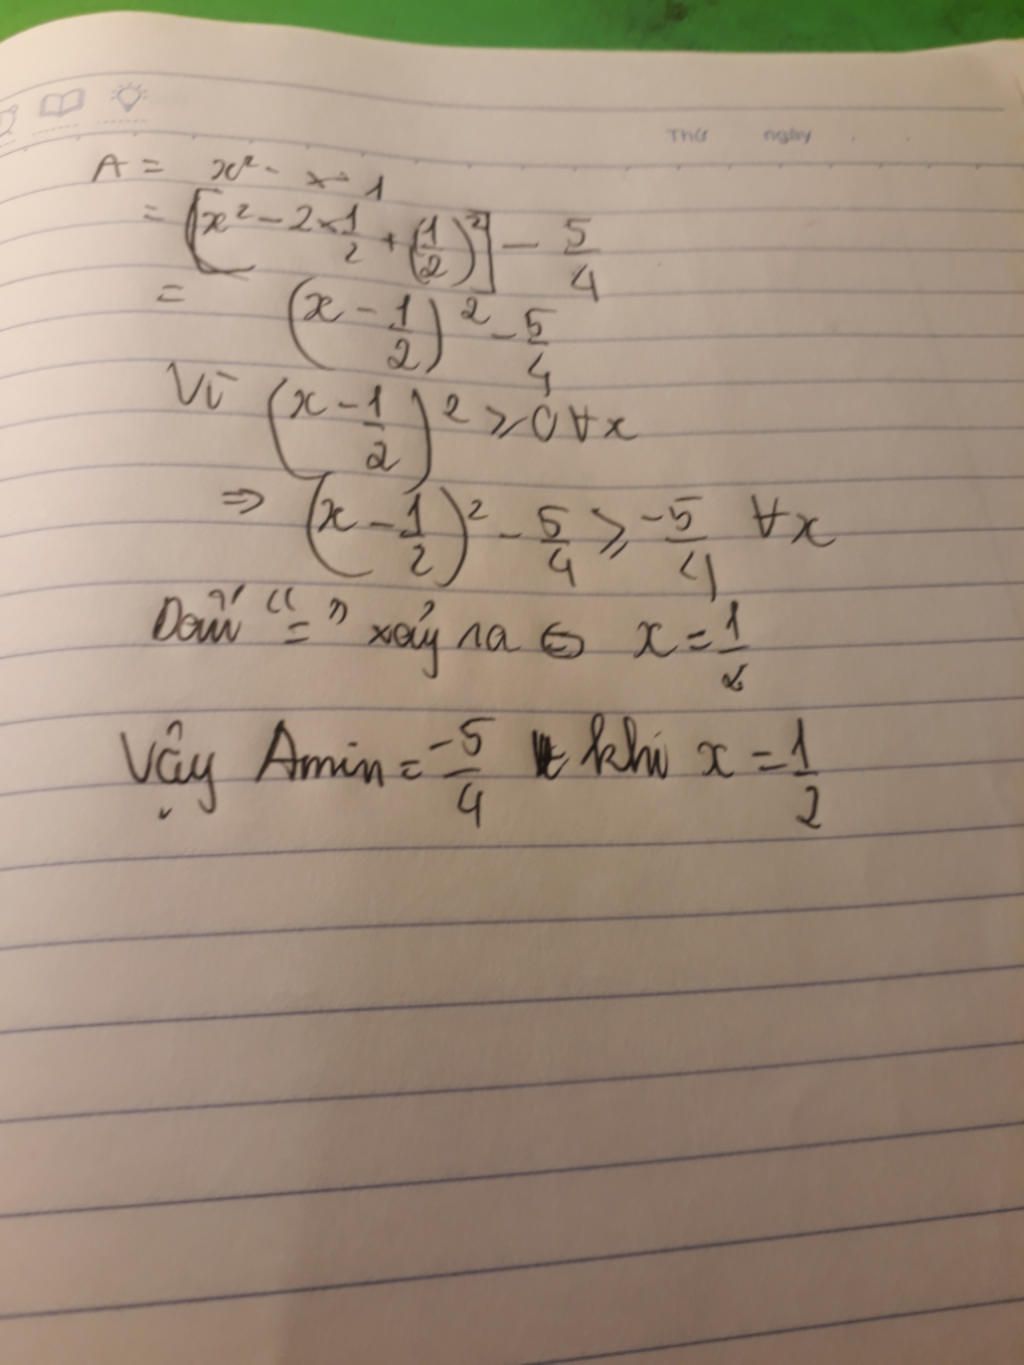 Thứ ngày
A = x² - x - 1
= [x² - 2x\frac{1}{2} + (\frac{1}{2})²] - \frac{5}{4}
= (x - \frac{1}{2})² - \frac{5}{4}
Vì (x - \frac{1}{2})² ⩾ 0 ∀x
⇒ (x - \frac{1}{2})² - \frac{5}{4} ⩾ \frac{-5}{4} ∀x
Dấu "=" xảy ra ⇔ x = \frac{1}{2}
Vậy Amin = \frac{-5}{4} khi x = \frac{1}{2}